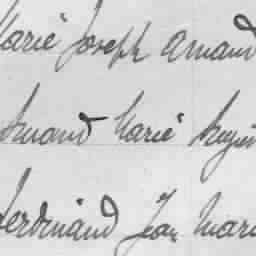 Marie Joseph Amand
Amand Marie Augus
Ferdinand Jean Mari